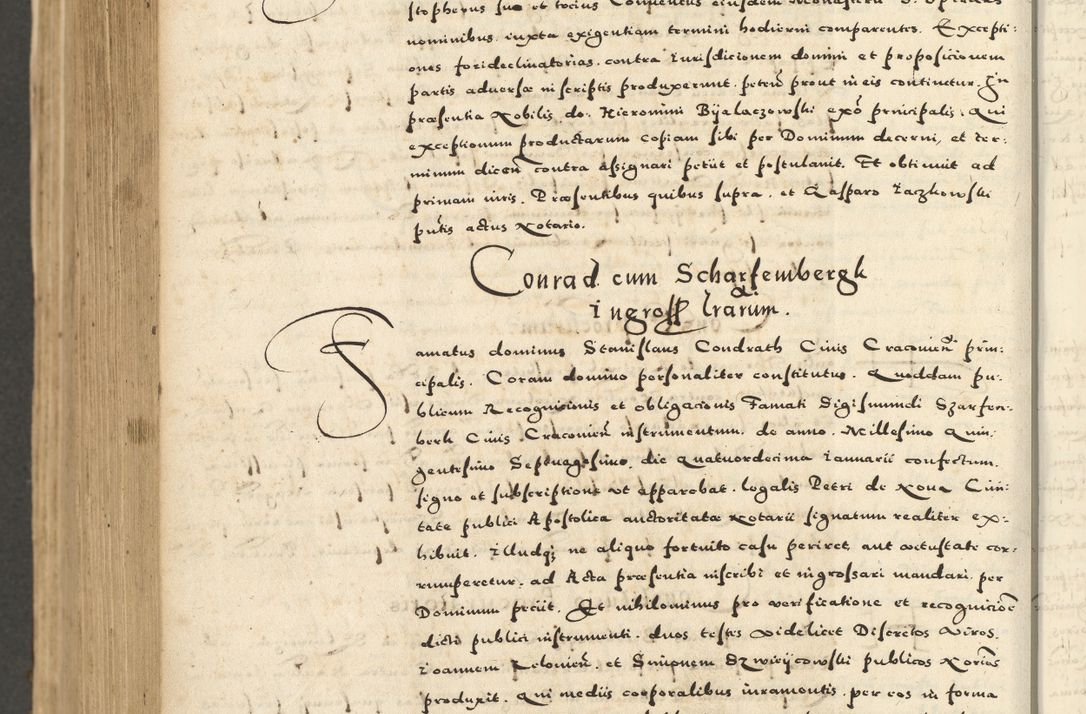 stopherus suo et tocius Conventus eiusdem Monasterii
nominibus iuxta exigentiam termini hodierni comparentes. Excepti-
ones forideclinatorias contra Jurisdicionem domini et proposicionem
partis adversæ in scriptis produxerunt peten̄ prout in eis continetur. In
præsentia Nobilis do: Hieronimi Byalaczowski exō principalis. Qui
exceptionum productarum copiam sibi per Dominum decerni, et ter-
minum dicen̄ contra Assignari petiit et postulavit. Et obtinuit ad
primam iuris. Præsentibus quibus supra. et Gasparo Jaczkowski
pn̄tis actus Notario.
Conrad cum Scharfembergk
Ingross lrarum.
Famatus dominus Stanislaus Condrath Civis Cracovien̄ prin-
cipalis. Coram domino personaliter constitutus. Quoddam pu-
blicum Recognicionis et obligacionis Famati Sigismundi Szarfen-
berk Civis Cracovien̄ instrumentum de anno. Millesimo Quin-
gentesimo Septuagesimo, die quatuordecima Januarii confectum.
signo et subscriptione ut apparebat. legalis Petri de Nova Civi-
tate publici Apostolica auctoritate Notarii signatum realiter ex-
hibuit. Illudq; ne aliquo fortuito casu periret, aut vetustate cor-
rumperetur. ad Acta præsentia inscribi et ingrossari mandari per
Dominum peciit. Et nihilominus pro verificatione et recognicioē
dicti publici instrumenti. duos testes videlicet Discretos Viros.
Joannem Zelonien̄. et Simonem Dzwierzcowski publicos Norios
produxit. Qui mediis corporalibus iuramentis. per eos in forma